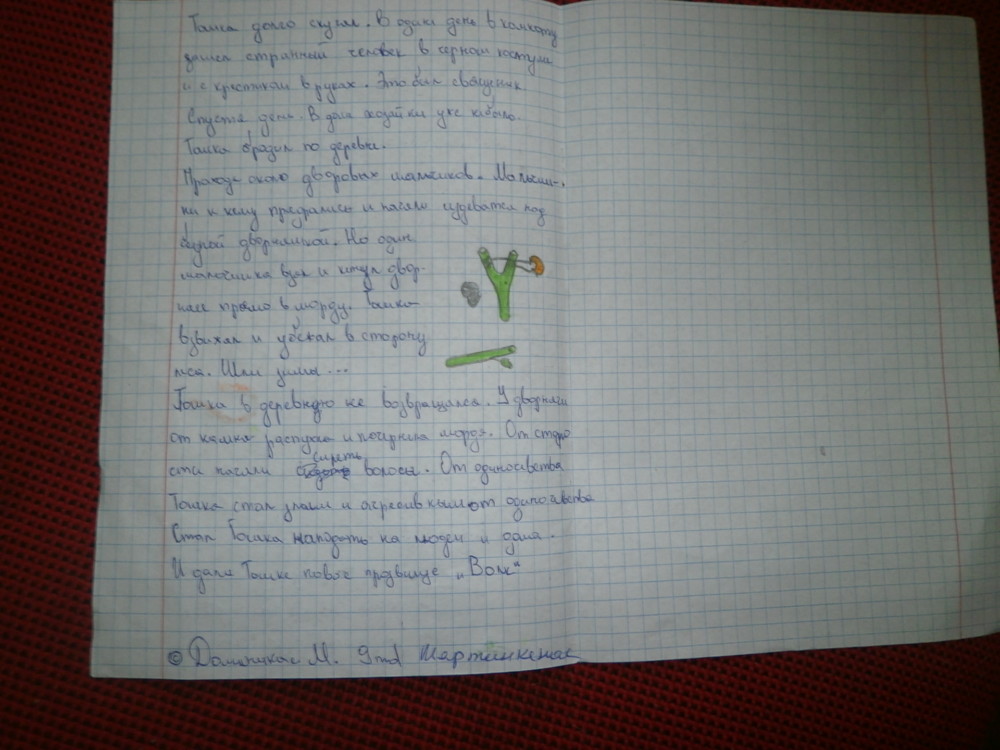 Тошка долго скучал. В один день в комноту
зашел странный человек в черном костуме
и с крестиком в руках. Это был священик
Спустя день. В доме хозяйки уже небыло.
Тошка бродил по деревне.
Проходя около дворовых мальчиков. Мальчи-
ки к нему предрались и начали издеватся над
бедной дворняшкой. Но один
мальчишка взял и кинул двор-
няге прямо в морду. Тошка
взвыхал и убежал в сторону
леса. Шли зимы...
Тошка в деревную не возвращался. У дворняги
от камня распухла и почернела морда. От старо
сти начали сидеть волосы. От одиночества
Тошка стал злым и агресивным от одиночества
Стал Тошка нападать на людей и дома.
И дали Тошке новое прозвище „Волк“
© Доминикас М. 9md